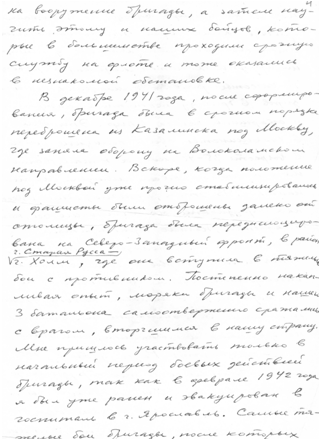 4
на вооружение бригады, а затем нау-
чить этому и наших бойцов, кото-
рые в большинстве проходили срочную
службу на флоте и тоже оказались
в незнакомой обстановке.
В декабре 1941 года, после сформиро-
вания, бригада была в срочном порядке
переброшена из Казалинска под Москву,
где заняла оборону на Волоколамском
направлении. Вскоре, когда положение
под Москвой уже прочно стабилизировалось
и фашисты были отброшены далеко от
столицы, бригада была передислоциро-
вана на Северо-Западный фронт, в район
г. Старая Русса –
г. Холм, где она вступила в тяжелые
бои с противником. Постепенно накап-
ливая опыт, моряки бригады и наши
3 батальона самоотверженно сражались
с врагом, вторгшимся в нашу страну.
Мне пришлось участвовать только в
начальный период боевых действий
бригады, так как в феврале 1942 года
я был уже ранен и эвакуирован в
госпиталь в г. Ярославль. Самые тя-
желые бои бригады, после которых